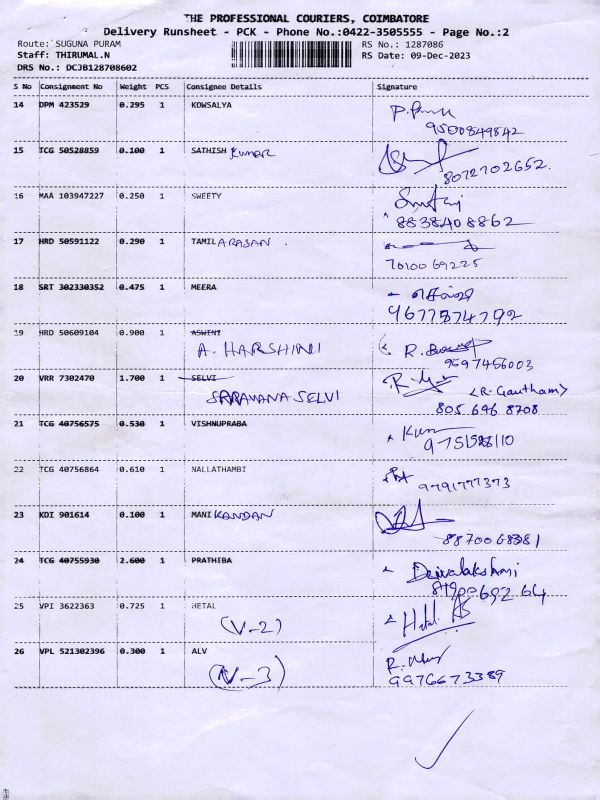 THE PROFESSIONAL COURIERS, COIMBATORE
Delivery Runsheet - PCK - Phone No.:0422-3505555 - Page No.:2
Route: SUGUNA PURAM RS No.: 1287086
Staff: THIRUMAL.N RS Date: 09-Dec-2023
DRS No.: DCJB128708602
S No Consignment No Weight PCS Consignee Details Signature
14 DPM 423529 0.295 1 KOWSALYA
9500849842
15 TCG 50528859 0.100 1 SATHISH Kumar
8072702652.
16 MAA 103947227 0.250 1 SWEETY
8838408862
17 HRD 50591122 0.290 1 TAMIL ARASAN
7010069225
18 SRT 302330352 0.475 1 MEERA
9677874792
19 HRD 50609104 0.900 1 ASWINI
A. HARSHINI
9597456003
20 VRR 7302470 1.700 1 SELVI
SARAVANA SELVI <R. Gautham>
805 646 8708
21 TCG 40756575 0.530 1 VISHNUPRABA
22 TCG 40756864 0.610 1 NALLATHAMBI
9791777373
23 KDI 901614 0.100 1 MANI KANDAN
24 TCG 40755930 2.600 1 PRATHIBA
Deivalakshmi
25 VPI 3622363 0.725 1 HETAL
(V-2) Hetal
26 VPL 521302396 0.300 1 ALV
(V-3)
9976673389